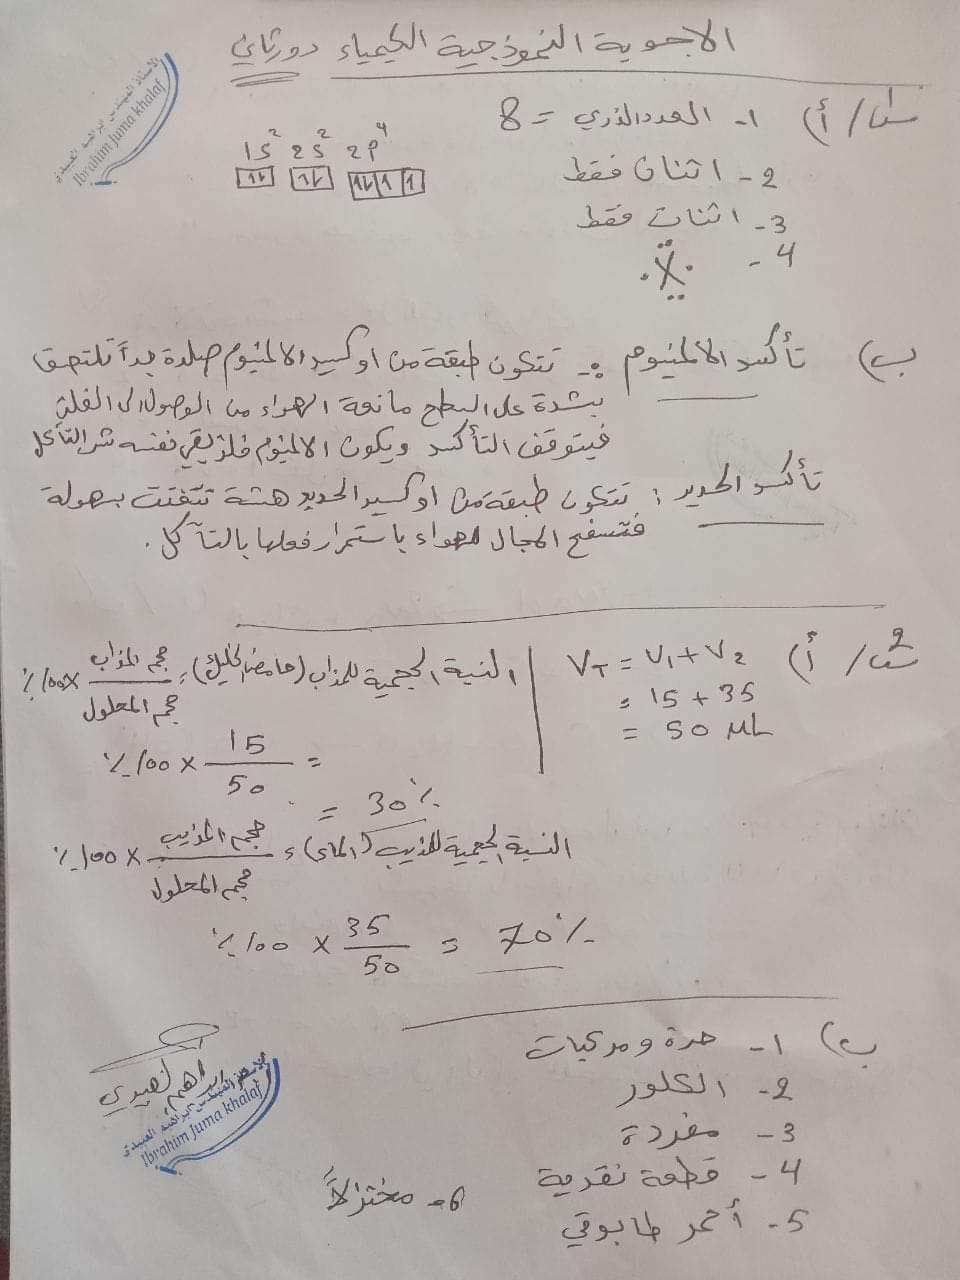 الاجوبة النموذجية الكيمياء دورثاني
الاستاذ المهندس ابراهيم العبيدي
Ibrahim Juma khalaf
س1/ أ) 1- العدد الذري = 8
1S² 2S² 2P⁴
2- اثنان فقط
3- اثنان فقط
4- X
ب) تأكسد الالمنيوم :- تتكون طبقة من اوكسيد الالمنيوم صلدة جداً تلتصق
بشدة على السطح مانعة الهواء من الوصول الى الفلز
فيتوقف التأكسد ويكون الالمنيوم فلز يقي نفسه شر التآكل
تأكسد الحديد : تتكون طبقة من اوكسيد الحديد هشة تتفتت بسهولة
فتفسح المجال للهواء باستمرار فعلها بالتآكل .
س2/ أ) VT = V1 + V2
= 15 + 35
= 50 ML
النسبة الحجمية للمذاب (حامض الخليك) = حجم المذاب / حجم المحلول × 100 ٪
= 15 / 50 × 100 ٪
= 30 ٪
النسبة الحجمية للمذيب (الماء) = حجم المذيب / حجم المحلول × 100 ٪
٪ 100 × 35 / 50 = 70 ٪
ب) 1- حرة ومركبات
2- الكلور
3- مفردة
4- قطعة نقدية
5- أحمر طابوقي
6- مختزلاً
ابراهيم العبيدي
الاستاذ المهندس ابراهيم العبيدي
Ibrahim Juma khalaf